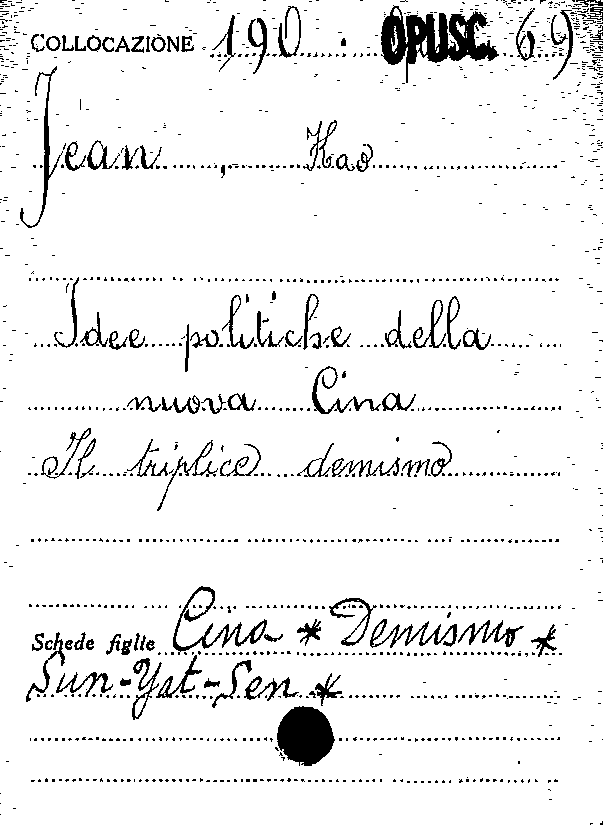 COLLOCAZIONE 190 . OPUSC. 69
Jean, Kao
Idee politiche della
nuova Cina
Il triplice demismo
Schede figlie Cina * Demismo *
Sun-Yat-Sen *